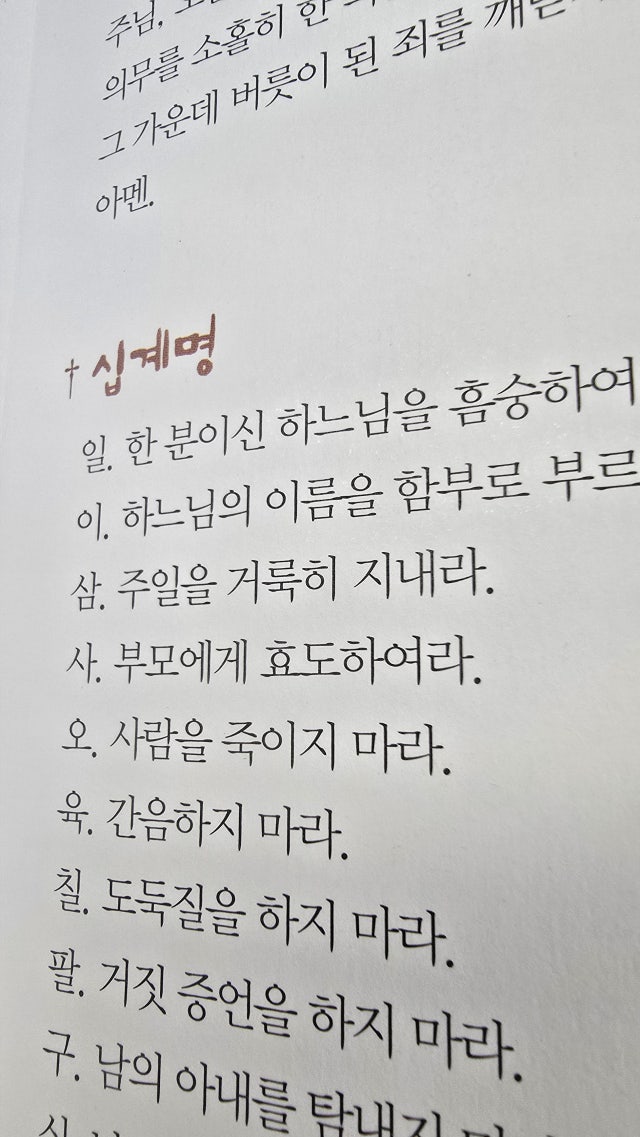 주님,
의무를 소홀히 한
그 가운데 버릇이 된 죄를
아멘.
† 십계명
일. 한 분이신 하느님을 흠숭하여
이. 하느님의 이름을 함부로 부르
삼. 주일을 거룩히 지내라.
사. 부모에게 효도하여라.
오. 사람을 죽이지 마라.
육. 간음하지 마라.
칠. 도둑질을 하지 마라.
팔. 거짓 증언을 하지 마라.
구. 남의 아내를 탐내지